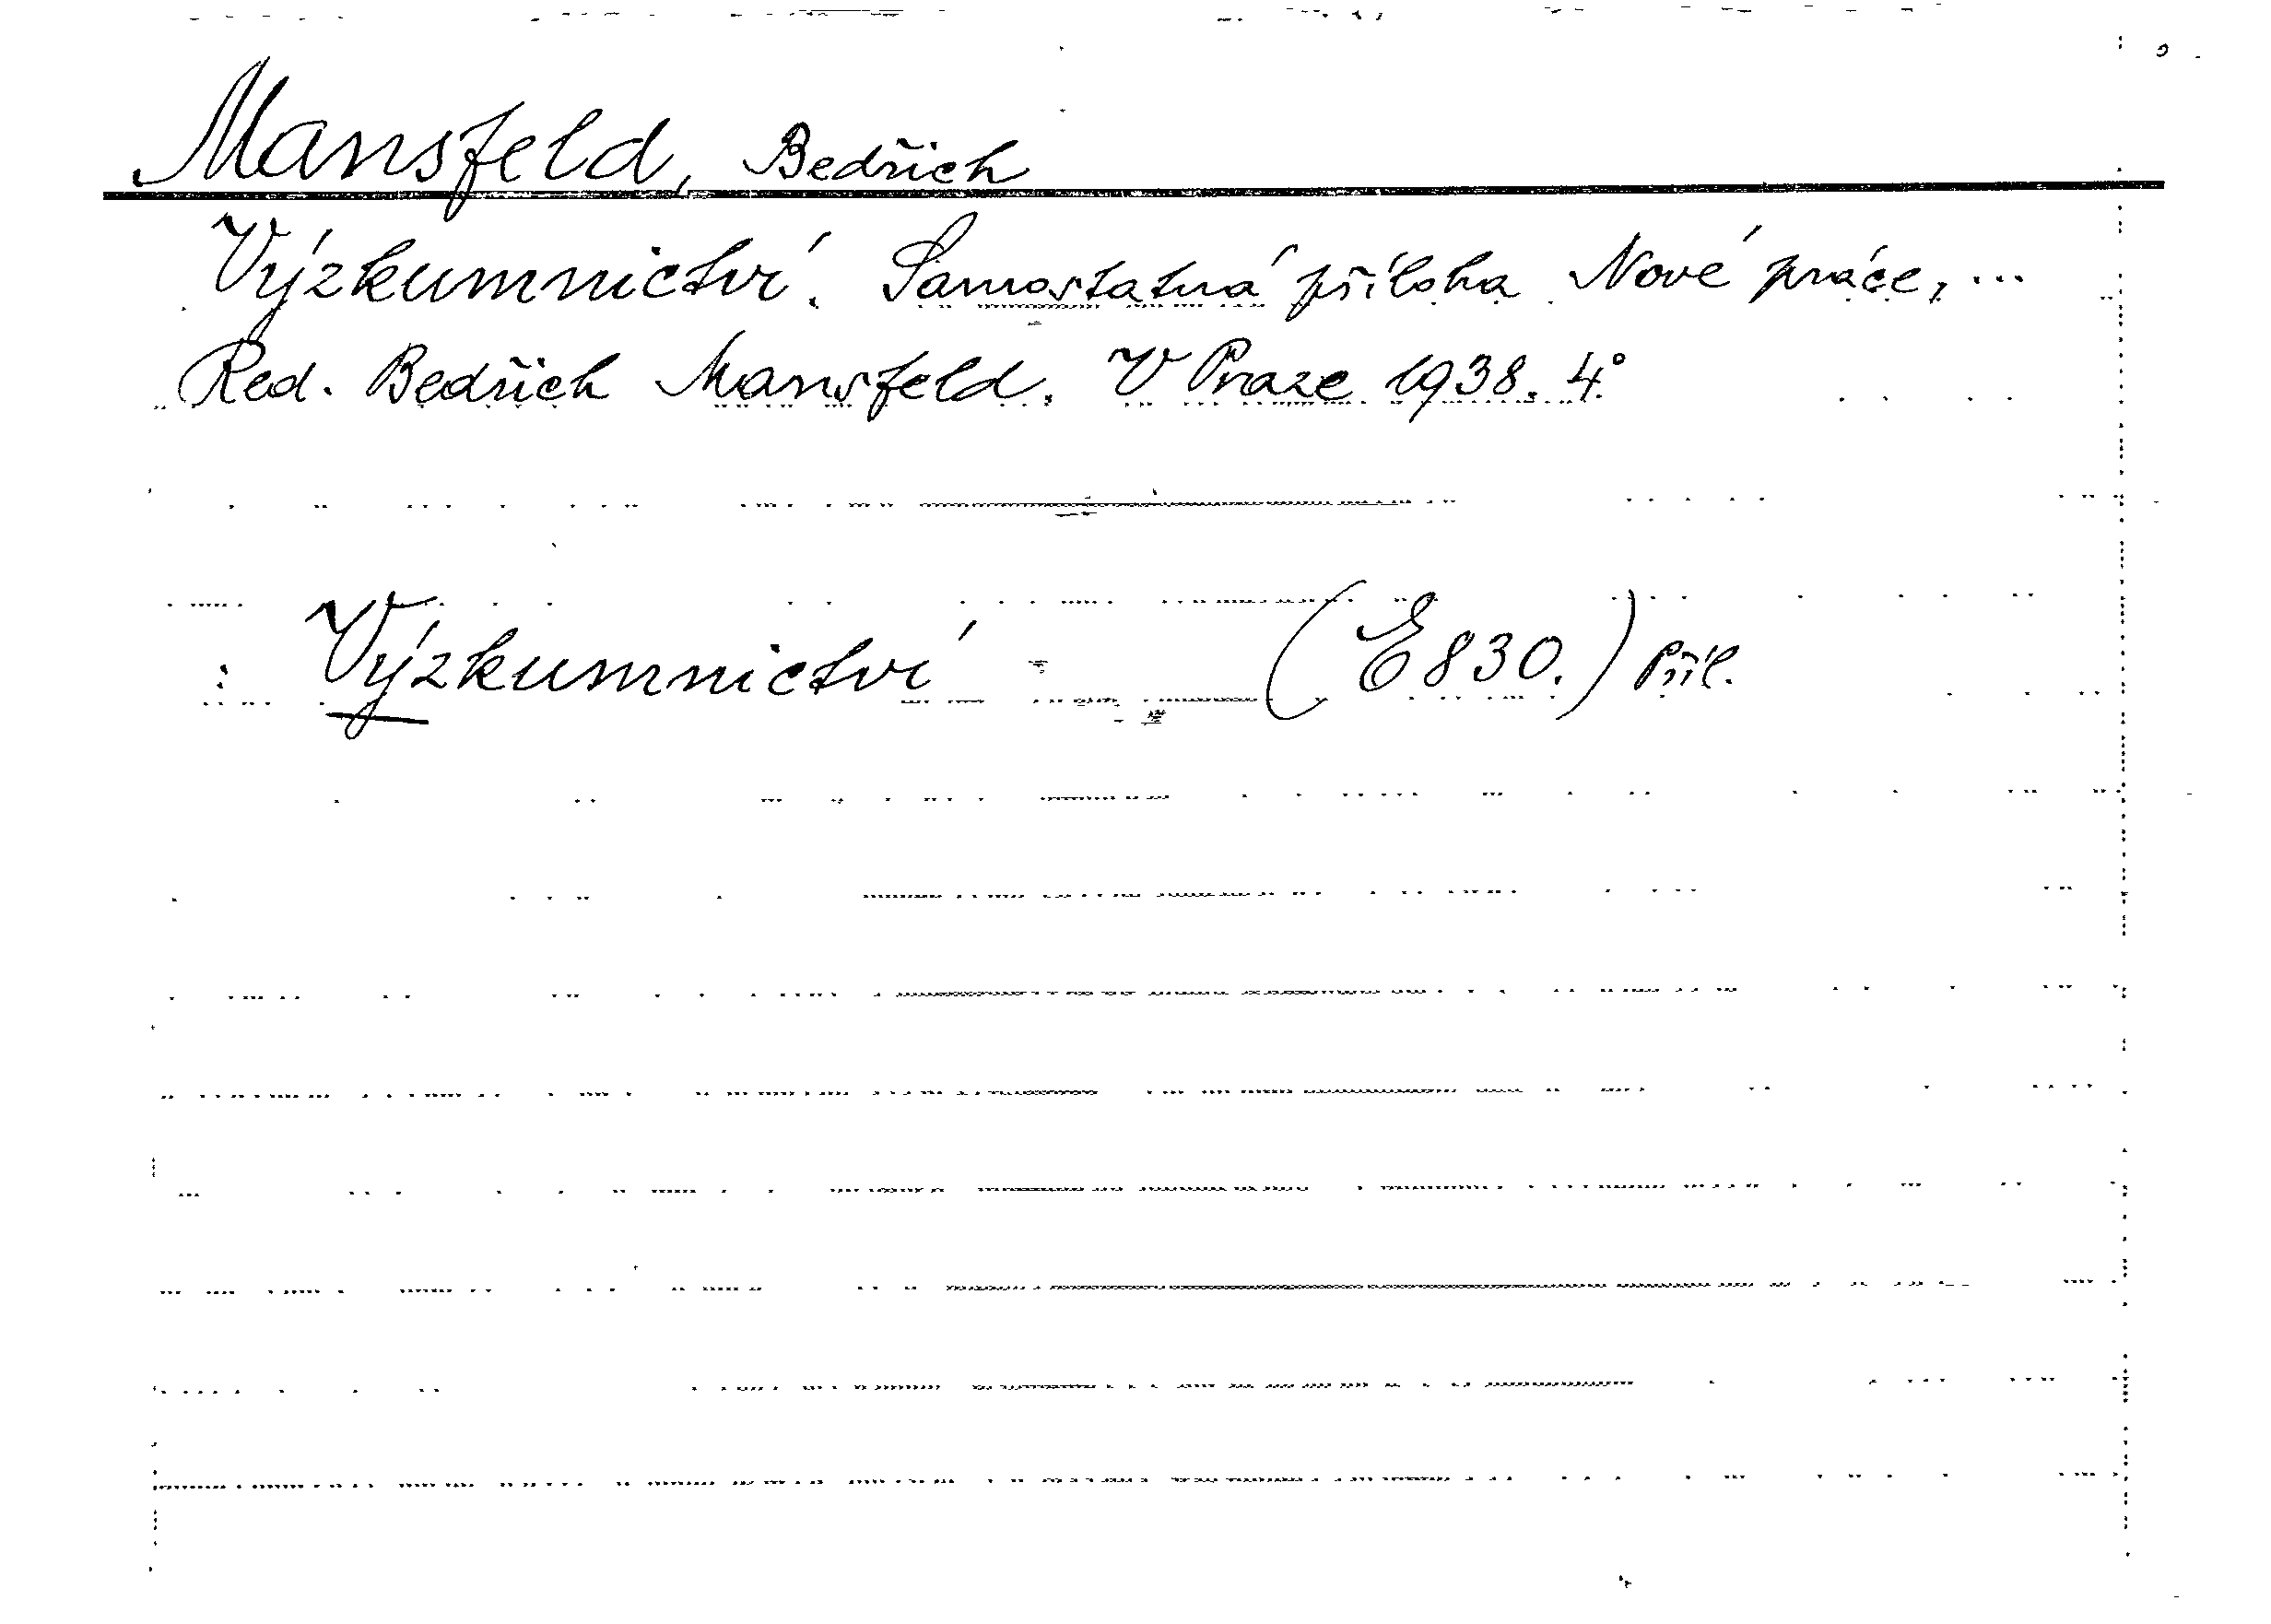 Mansfeld, Bedřich
Výzkumnictví. Samostatná příloha Nové práce, ...
Red. Bedřich Mansfeld. V Praze 1938. 4°
Výzkumnictví (E 830.) Příl.